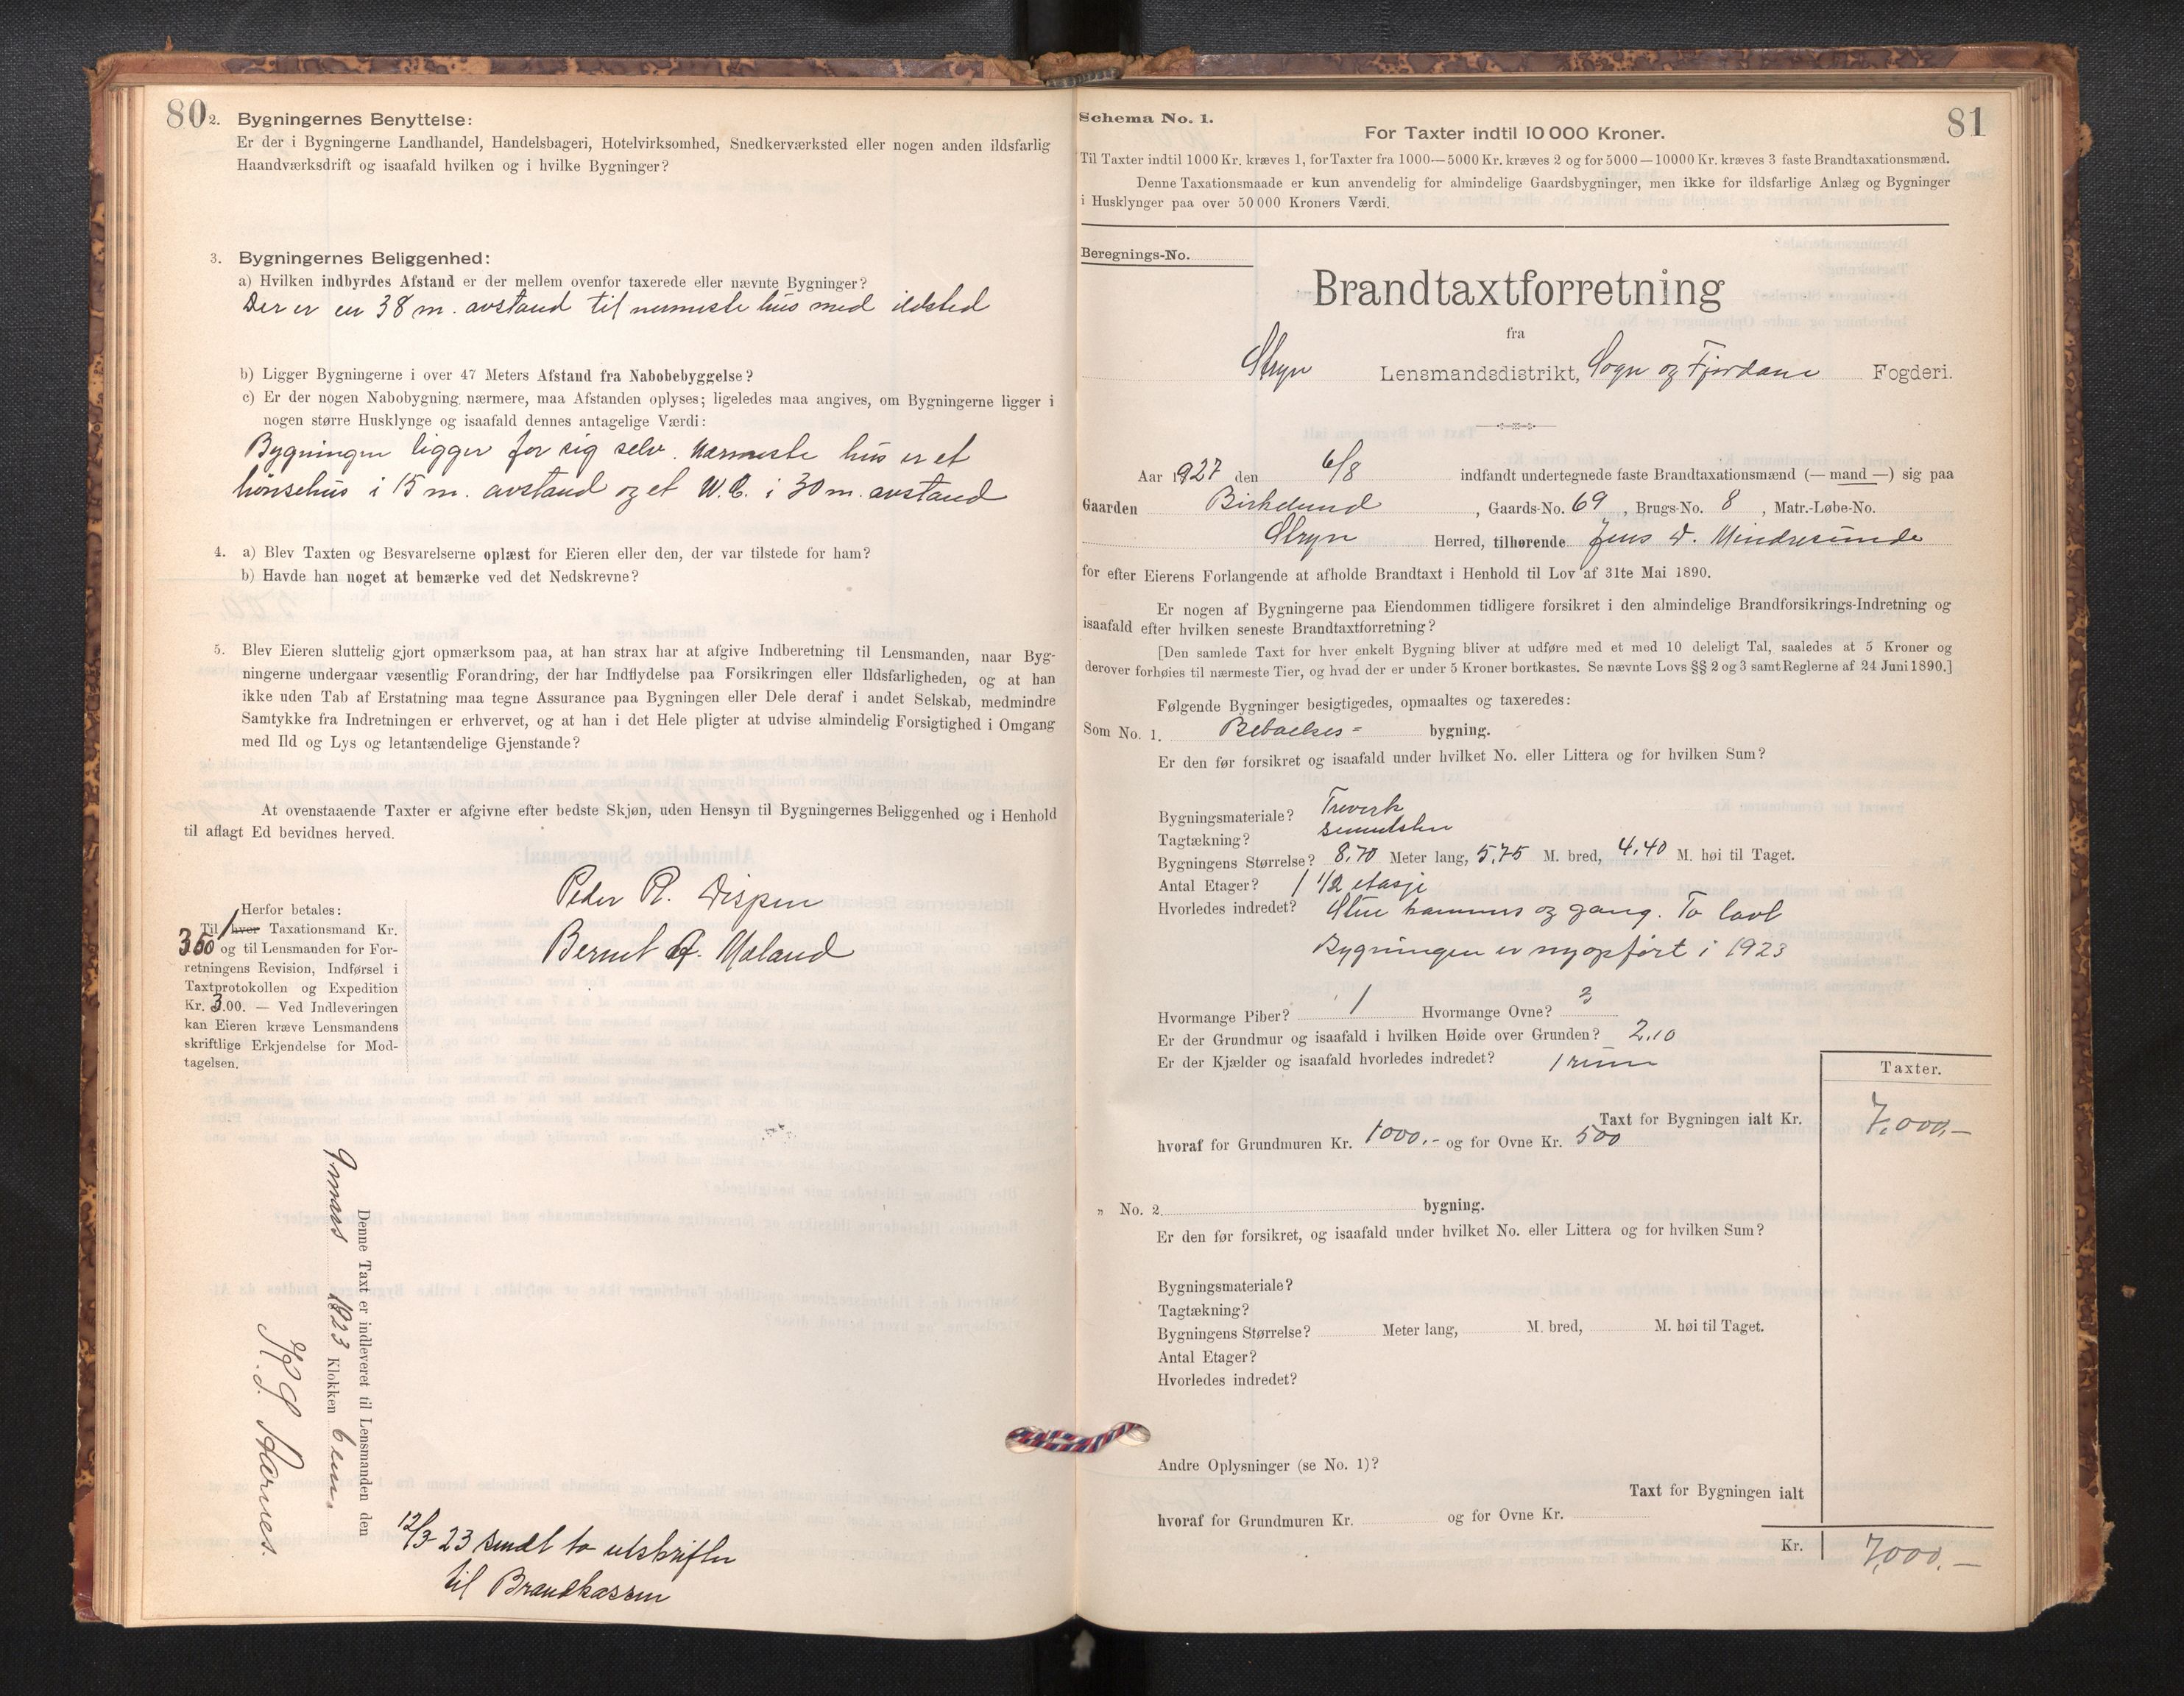 80
2. Bygningernes Benyttelse:
Er der i Bygningerne Landhandel, Handelsbageri, Hotelvirksomhed, Snedkerværksted eller nogen anden ildsfarlig
Haandværksdrift og isaafald hvilken og i hvilke Bygninger?
3. Bygningernes Beliggenhed:
a) Hvilken indbyrdes Afstand er der mellem ovenfor taxerede eller nævnte Bygninger?
Der er en 38 m. avstand til nermeste hus med ildsted
b) Ligger Bygningerne i over 47 Meters Afstand fra Nabobebyggelse?
c) Er der nogen Nabobygning nærmere, maa Afstanden oplyses; ligeledes maa angives, om Bygningerne ligger i
nogen større Husklynge og isaafald dennes antagelige Værdi:
Bygningen ligger for sig selv. Nærmeste hus er et
hønsehus i 15 m. avstand og et W.C. i 30 m. avstand
4. a) Blev Taxten og Besvarelserne oplæst for Eieren eller den, der var tilstede for ham?
b) Havde han noget at bemærke ved det Nedskrevne?
5. Blev Eieren sluttelig gjort opmærksom paa, at han strax har at afgive Indberetning til Lensmanden, naar Byg-
ningerne undergaar væsentlig Forandring, der har Indflydelse paa Forsikringen eller Ildsfarligheden, og at han
ikke uden Tab af Erstatning maa tegne Assurance paa Bygningen eller Dele deraf i andet Selskab, medmindre
Samtykke fra Indretningen er erhvervet, og at han i det Hele pligter at udvise almindelig Forsigtighed i Omgang
med Ild og Lys og letantændelige Gjenstande?
At ovenstaaende Taxter er afgivne efter bedste Skjøn, uden Hensyn til Bygningernes Beliggenhed og i Henhold
til aflagt Ed bevidnes herved.
Peder R. Dispen
Bernt A. Meland
Herfor betales:
Til 1 hver Taxationsmand Kr.
3.50 og til Lensmanden for For-
retningens Revision, Indførsel i
Taxtprotokollen og Expedition
Kr. 3.00. — Ved Indleveringen
kan Eieren kræve Lensmandens
skriftlige Erkjendelse for Mod-
tagelsen.
Denne Taxt er indleveret til Lensmanden den
9 mars 1923 Klokken 6 em.
Aarnes.
12/3-23 sendt to utskrifter
til Brandkassen
81
Schema No. 1.
For Taxter indtil 10 000 Kroner.
Til Taxter indtil 1000 Kr. kræves 1, for Taxter fra 1000—5000 Kr. kræves 2 og for 5000—10000 Kr. kræves 3 faste Brandtaxationsmænd.
Denne Taxationsmaade er kun anvendelig for almindelige Gaardsbygninger, men ikke for ildsfarlige Anlæg og Bygninger
i Husklynger paa over 50 000 Kroners Værdi.
Beregnings-No.
Brandtaxtforretning
fra
Stryn Lensmandsdistrikt, Sogn og Fjordane Fogderi.
Aar 1927 den 6/8 indfandt undertegnede faste Brandtaxationsmænd (— mand —) sig paa
Gaarden Birkelund, Gaards-No. 69, Brugs-No. 8, Matr.-Løbe-No.
Stryn Herred, tilhørende Jens D. Mindresunde
for efter Eierens Forlangende at afholde Brandtaxt i Henhold til Lov af 31te Mai 1890.
Er nogen af Bygningerne paa Eiendommen tidligere forsikret i den almindelige Brandforsikrings-Indretning og
isaafald efter hvilken seneste Brandtaxtforretning?
[Den samlede Taxt for hver enkelt Bygning bliver at udføre med et med 10 deleligt Tal, saaledes at 5 Kroner og
derover forhøies til nærmeste Tier, og hvad der er under 5 Kroner bortkastes. Se nævnte Lovs §§ 2 og 3 samt Reglerne af 24 Juni 1890.]
Følgende Bygninger besigtigedes, opmaaltes og taxeredes:
Som No. 1. Beboelses= bygning.
Er den før forsikret og isaafald under hvilket No. eller Littera og for hvilken Sum?
Bygningsmateriale? Treverk
Tagtækning? sementsten
Bygningens Størrelse? 8,70 Meter lang, 5,75 M. bred, 4,40 M. høi til Taget.
Antal Etager? 1 1/2 etasje
Hvorledes indredet? Stue kammers og gang. To lovt
Bygningen er nyopført i 1923
Hvormange Piber? 1 Hvormange Ovne? 2
Er der Grundmur og isaafald i hvilken Høide over Grunden? 2,10
Er der Kjælder og isaafald hvorledes indredet? 1 rum
Taxter.
Taxt for Bygningen ialt Kr. 7.000,—
hvoraf for Grundmuren Kr. 1000,- og for Ovne Kr. 500
„ No. 2. bygning.
Er den før forsikret, og isaafald under hvilket No. eller Littera og for hvilken Sum?
Bygningsmateriale?
Tagtækning?
Bygningens Størrelse? Meter lang, M. bred, M. høi til Taget.
Antal Etager?
Hvorledes indredet?
Andre Oplysninger (se No. 1)?
Taxt for Bygningen ialt
hvoraf for Grundmuren Kr. og for Ovne Kr.
Kr. 7,000,—